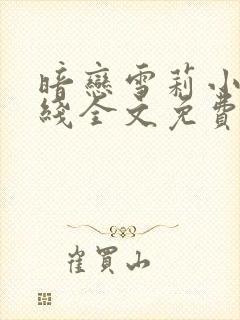 暗戀雪莉小
綫全文免費
崔買山